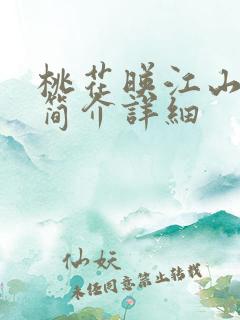 桃花暎江山
简介詳細
仙妖
未经同意禁止转载